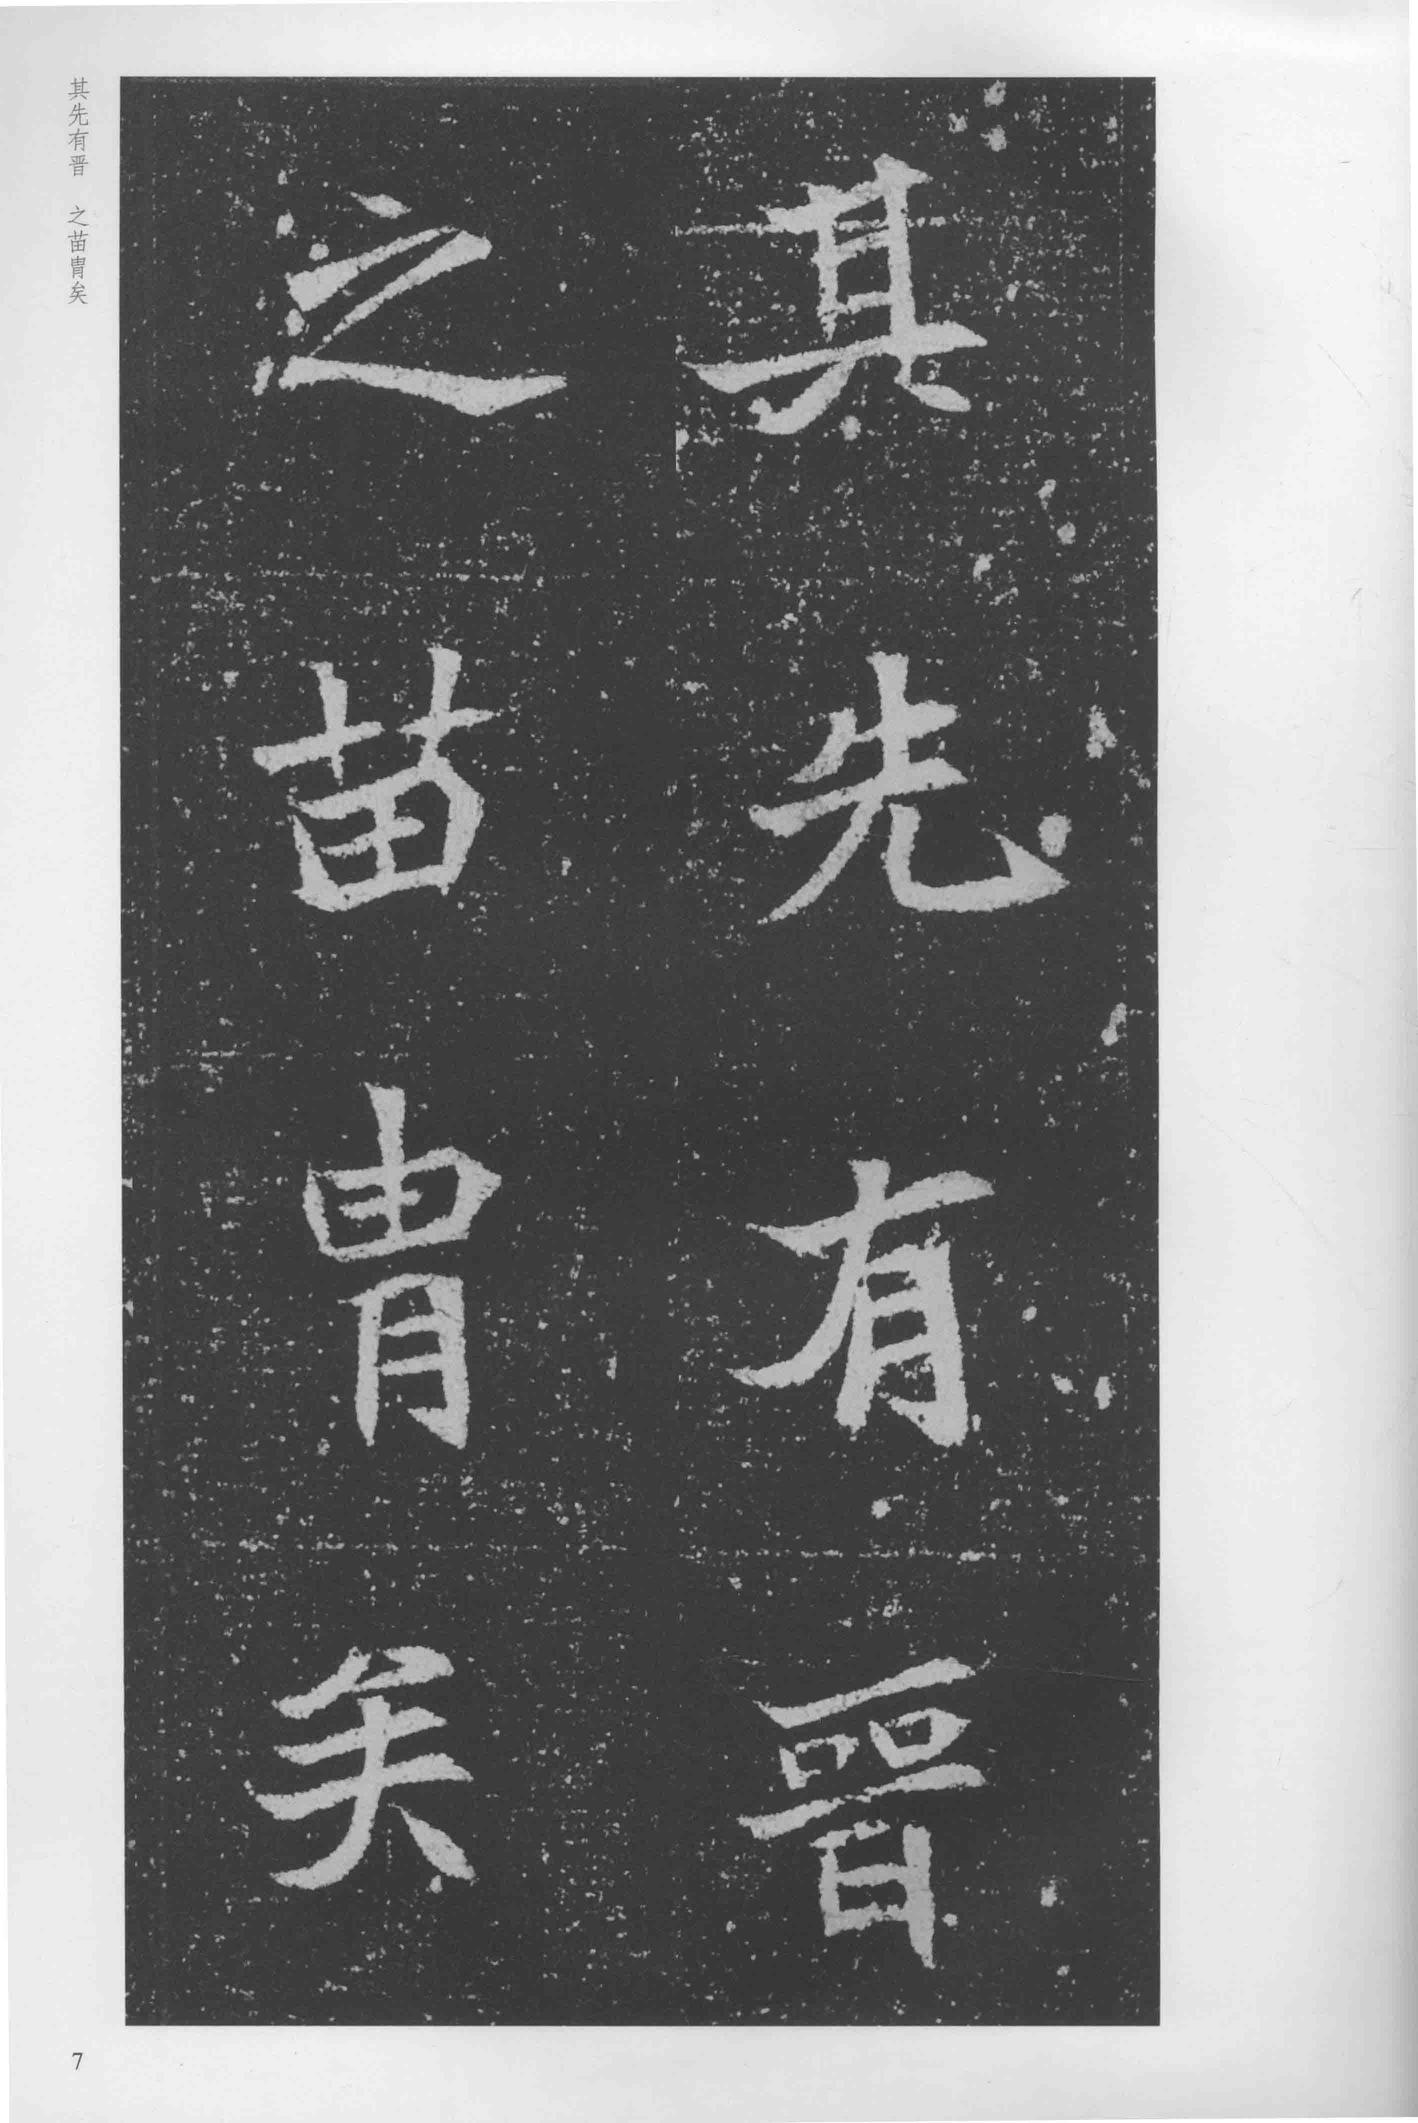 其先有晋
之苗胄矣
其先有晋 之苗胄矣
7